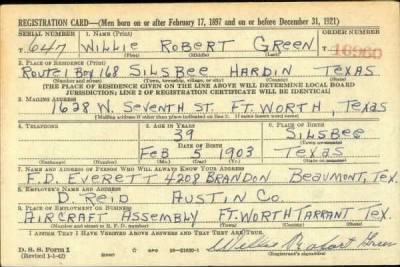 REGISTRATION CARD—(Men born on or after February 17, 1897 and on or before December 31, 1921)
SERIAL NUMBER 1. NAME (Print) ORDER NUMBER
T 647 WILLIE ROBERT GREEN T 10960
(First) (Middle) (Last)
2. PLACE OF RESIDENCE (Print)
ROUTE 1 BOX 168 SILSBEE HARDIN TEXAS
(Number and street) (Town, township, village, or city) (County) (State)
[THE PLACE OF RESIDENCE GIVEN ON THE LINE ABOVE WILL DETERMINE LOCAL BOARD
JURISDICTION; LINE 2 OF REGISTRATION CERTIFICATE WILL BE IDENTICAL]
3. MAILING ADDRESS
1628 W. SEVENTH ST. FT. WORTH, TEXAS
[Mailing address if other than place indicated on line 2. If same insert word same]
4. TELEPHONE 5. AGE IN YEARS 6. PLACE OF BIRTH
39 SILSBEE
DATE OF BIRTH
FEB 5 1903 TEXAS
(Exchange) (Number) (Mo.) (Day) (Yr.) (State or country)
7. NAME AND ADDRESS OF PERSON WHO WILL ALWAYS KNOW YOUR ADDRESS
F.D. EVERETT 4208 BRANDON BEAUMONT, TEX.
8. EMPLOYER'S NAME AND ADDRESS
D. REID AUSTIN CO.
9. PLACE OF EMPLOYMENT OR BUSINESS
AIRCRAFT ASSEMBLY FT. WORTH TARRANT TEX.
(Number and street or R. F. D. number) (Town) (County) (State)
I AFFIRM THAT I HAVE VERIFIED ABOVE ANSWERS AND THAT THEY ARE TRUE.
D. S. S. Form 1
(Revised 1-1-42) (over) Willie Robert Green
(Registrant's signature)